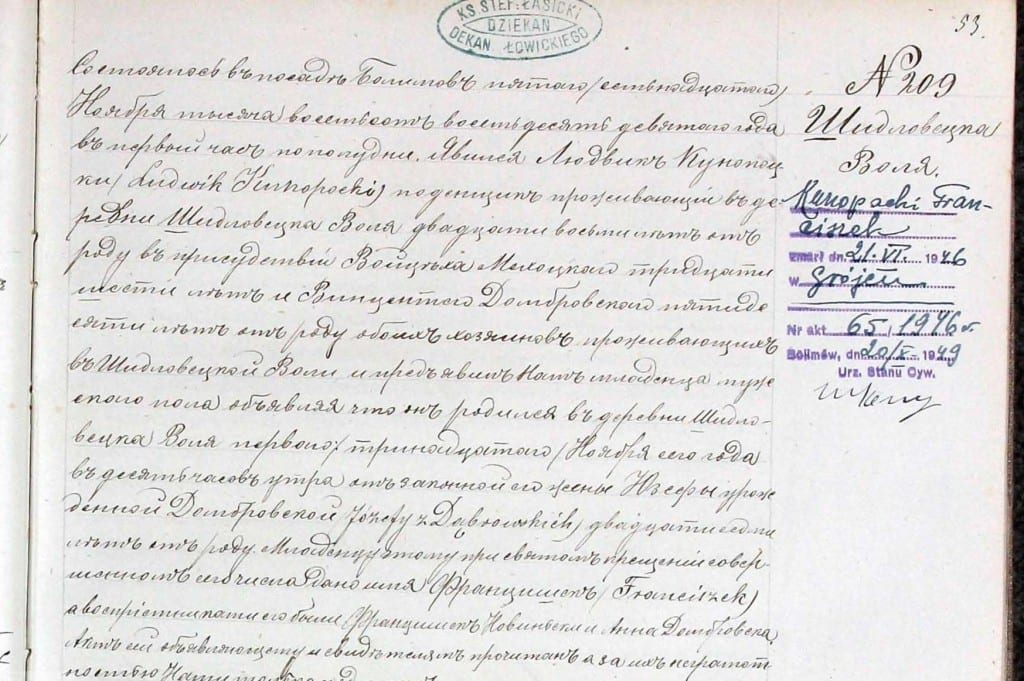 KS. STEF. ŁASICKI
DZIEKAN
DEKAN. ŁOWICKIEGO
53.
Состоялось въ посадѣ Болимовъ пятаго/семьнадцатаго/
Ноября тысяча восемьсотъ восемьдесять девятаго года
въ первый часъ по полудни. Явился Людвикъ Кунопац-
ки/Ludwik Kunopacki/ поденщикъ проживающій въ де-
ревни Шидловецка Воля двадцати восьми лѣтъ отъ
роду въ присудствіи Войцѣха Мелоцкаго тридцати
шести лѣтъ и Винцентего Домбровскаго пятиде
сяти лѣтъ отъ роду обоихъ хозяиновъ проживающихъ
въ Шидловецкой Воли и предъявилъ Намъ младенца муже
скаго пола объявляя что онъ родился въ деревни Шидло-
вецка Воля перваго/тринадцатаго/Ноября сего года
въ десять часовъ утра отъ законной его жены Юзефы урож
денной Домбровской /Józefy z Dąbrowskich/ двадцати седми
лѣтъ отъ роду. Младенцу этому при святомъ крещеніи совер-
шенномъ сего числа дано имя Францишекъ/Franciszek/
а воспріемниками его были Францишекъ Новиньски и Анна Домбровска
Актъ сей объявляющему и свидѣтелямъ прочитанъ а за ихъ неграмот
ностью Нами только
№ 209
Шидловецка
Воля.
Kunopacki Fran-
ciszek
zmarł dn. 21. VI. 1946
w Grójcu
Nr akt 65/1946 r.
Bolimów, dn. 20/X. 1949
Urz. Stanu Cyw.